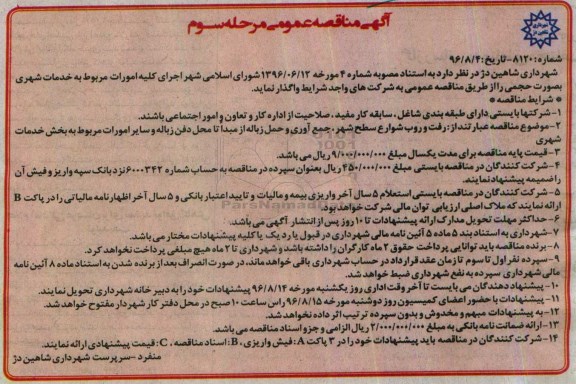 آگهی مناقصه عمومی مرحله سوم
شماره: ۸۱۲۰-تاریخ: ۹۶/۸/۴
شهرداری شاهین دژ در نظر دارد به استناد مصوبه شماره ۴ مورخه ۱۳۹۶/۰۶/۱۲ شورای اسلامی شهر اجرای کلیه امورات مربوط به خدمات شهری
بصورت حجمی را از طریق مناقصه عمومی به شرکت های واجد شرایط واگذار نماید.
* شرایط مناقصه *
۱-شرکتها بایستی دارای طبقه بندی شاغل، سابقه کار مفید، صلاحیت از اداره کار و تعاون و امور اجتماعی باشند.
۲-موضوع مناقصه عبارتنداز: رفت و روب شوارع سطح شهر، جمع آوری و حمل زباله از مبدا تا محل دفن زباله و سایر امورات مربوط به بخش خدمات
شهری
۳-قیمت پایه مناقصه برای مدت یکسال مبلغ ۹/۰۰۰/۰۰۰/۰۰۰ ریال می باشد.
۴-شرکت کنندگان در مناقصه بایستی مبلغ ۴۵۰/۰۰۰/۰۰۰ ریال بعنوان سپرده در مناقصه به حساب شماره ۶۰۰۰۳۴۲ نزد بانک سپه واریز و فیش آن
را ضمیمه پیشنهاد نمایند.
۵-شرکت کنندگان در مناقصه بایستی استعلام ۵ سال آخر واریزی بیمه و مالیات و تایید اعتبار بانکی و ۵ سال آخر اظهارنامه مالیاتی را در پاکت B
ارائه نمایند که ملاک اصلی ارزیابی توان مالی شرکت خواهد بود.
۶- حداکثر مهلت تحویل مدارک ارائه پیشنهادات تا ۱۰ روز پس از انتشار آگهی می باشد.
۷-شهرداری به استناد بند ۵ ماده ۵ آئین نامه مالی شهرداری در قبول یا رد یک یا کلیه پیشنهادات مختار می باشد.
۸- برنده مناقصه باید توانایی پرداخت حقوق ۲ ماه کارگران را داشته باشد و شهرداری تا ۲ ماه هیچ مبلغی پرداخت نخواهد کرد.
۹-سپرده نفر اول تا سوم تا زمان عقد قرارداد در حساب شهرداری باقی خواهد ماند، در صورت انصراف بعد از برنده شدن به استناد ماده ۸ آئین نامه
مالی شهرداری سپرده به نفع شهرداری ضبط خواهد شد.
۱۰-پیشنهاد دهندگان می بایست تا آخر وقت اداری روز یکشنبه مورخه ۹۶/۸/۱۴ پیشنهادات خود را به دبیر خانه شهرداری تحویل نمایند.
۱۱-پیشنهادات با حضور اعضای کمیسیون روز دوشنبه مورخه ۹۶/۸/۱۵ راس ساعت ۱۰ صبح در محل دفتر کار شهردار مفتوح خواهد شد.
۱۲-به پیشنهادات مبهم و مخدوش و بدون سپرده ترتیب اثر داده نخواهد شد.
۱۳-ارائه ضمانت نامه بانکی به مبلغ ۲/۰۰۰/۰۰۰/۰۰۰ ریال الزامی و جزو اسناد مناقصه می باشد.
۱۴-شرکت کنندگان در مناقصه باید پیشنهادات خود را در ۳ پاکت A: فیش واریزی، B: اسناد مناقصه، C: قیمت پیشنهادی ارائه نمایند.
منفرد -سرپرست شهرداری شاهین دژ